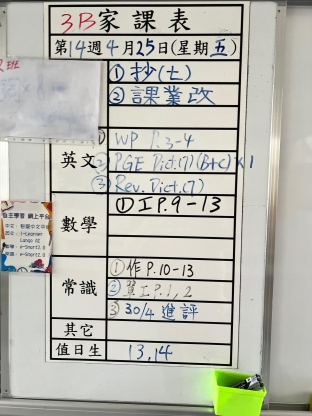 3B家課表
第14週4月25日(星期五)
①抄(七)
②課業改
英文
WP P.3-4
②PGE Dict.(7)(B+C)×1
③Rev. Dict.(7)
數學
①工P.9-13
常識
①作P.10-13
②工P.1,2
③30/4 進評
其它
值日生
13,14
自主學習 網上平台